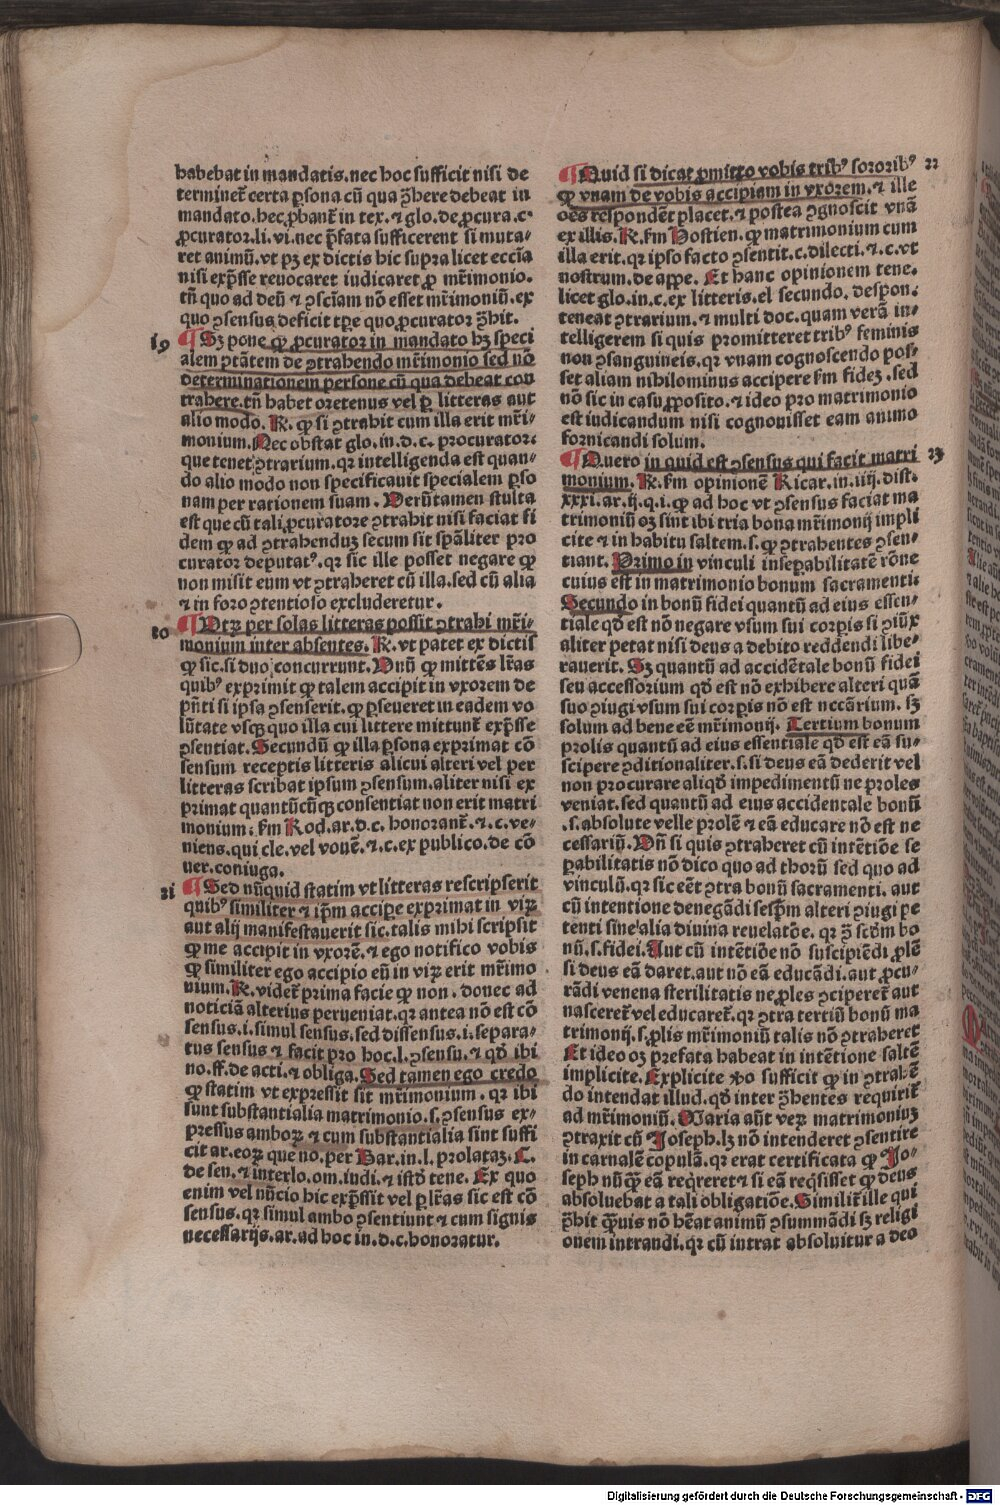 habebat in mandatis.nec hoc sufficit nisi de
terminet̃ certa ꝑsona cũ qua ↄ̃here debeat in
mandato.hec ꝓbant̃ in tex.⁊ glo.de ꝓcura.c.
ꝓcurator.li.vi.nec p̃fata sufficerent si muta⸗
ret animũ.vt pꝫ ex dictis hic supra licet eccĩa
nisi exp̃sse reuocaret iudicaret ꝓ mr̃imonio.
tñ quo ad deũ ⁊ ↄsciam nõ esset mr̃imoniũ.ex
quo ↄsensus deficit tp̃e quo ꝓcurator ↄ̃hit.
19 ¶ Sꝫ pone ꝙ ꝓcurator in mandato hꝫ speci
alem ptãtem de ↄtrahendo mr̃imonio sed nõ
determinationem persone cũ qua debeat con
trahere.tñ habet oretenus vel ꝑ litteras aut
alio modo. R̃. ꝙ si ↄtrahit cum illa erit mr̃i⸗
monium.Nec obstat glo.in.d.c. procurator:
que tenet ↄtrarium.qꝛ intelligenda est quan⸗
do alio modo non specificauit specialem ꝑso
nam per rationem suam. Verũtamen stulta
est que cũ tali ꝓcuratore ↄtrahit nisi faciat fi
dem ꝙ ad ↄtrahenduꝫ secum sit spãliter pro
curator deputatꝰ.qꝛ sic ille posset negare ꝙ
non misit eum vt ↄtraheret cũ illa.sed cũ alia
⁊ in foro ↄtentioso excluderetur.
20 ¶ Vtꝝ per solas litteras possit ↄtrahi mr̃i⸗
monium inter absentes. R̃. vt patet ex dictis
ꝙ sic.si duo concurrunt. Vnũ ꝙ mittẽs lr̃as
quibꝰ exprimit ꝙ talem accipit in vxorem de
pñti si ipsa ↄsenserit.ꝙ ꝑseueret in eadem vo
lũtate vsqꝫ quo illa cui littere mittunt̃ exp̃sse
ↄsentiat. Secundũ ꝙ illa ꝑsona exprimat cõ
sensum receptis litteris alicui alteri vel per
litteras scribat ipsum ↄsensum.aliter nisi ex
primat quantũcũqꝫ consentiat non erit matri
monium: fm Rod.ar.d.c. honorant̃.⁊.c.ve⸗
niens.qui cle.vel vouẽ.⁊.c.ex publico.de cõ
uer.coniuga.
21 ¶ Sed nũquid statim vt litteras rescripserit
quibꝰ similiter ⁊ ip̃m accipe exprimat in viꝝ
aut alij manifestauerit sic.talis mihi scripsit
ꝙ me accipit in vxorẽ.⁊ ego notifico vobis
ꝙ similiter ego accipio eũ in viꝝ erit mr̃imo
nium. R̃. videt̃ prima facie ꝙ non. donec ad
noticiã alterius perueniat.qꝛ antea nõ est cõ
sensus.i.simul sensus.sed dissensus.i.separa⸗
tus sensus ⁊ facit pro hoc.l.ↄsensu.⁊ qð ibi
no.ff.de acti.⁊ obliga. Sed tamen ego credo
ꝙ statim vt expressit sit mr̃imonium. qꝛ ibi
sunt substantialia matrimonio.s.ↄsensus ex⸗
pressus amboꝝ ⁊ cum substantialia sint suffi
cit ar.eoꝝ que no.per Bar.in.l.prolataꝫ.C.
de sen.⁊ interlo.om.iudi.⁊ istð tene. Ex quo
enim vel nũcio hic exp̃ssit vel ꝑ lr̃as sic est cõ
sensus.qꝛ simul ambo ↄsentiunt ⁊ cum signis
necessarijs.ar.ad hoc in.d.c.honoratur.
22 ¶ Quid si dicat ꝓmitto vobis tribꝰ sororibꝰ
ꝙ vnam de vobis accipiam in vxorem.⁊ ille
oẽs respondẽt placet.⁊ postea ↄgnoscit vnã
ex illis. R̃. fm Hostien.ꝙ matrimonium cum
illa erit.qꝛ ipso facto ↄsentit.c.dilecti.⁊.c.vt
nostrum.de appe. Et hanc opinionem tene.
licet glo.in.c.ex litteris.el secundo. despon:
teneat ↄtrarium.⁊ multi doc.quam verã in⸗
telligerem si quis promitteret tribꝰ feminis
non ↄsanguineis.qꝛ vnam cognoscendo pos⸗
set aliam nihilominus accipere fm fideꝫ.sed
nõ sic in casu ꝓposito.⁊ ideo pro matrimonio
est iudicandum nisi cognouisset eam animo
fornicandi solum.
23 ¶ Quero in quid est ↄsensus qui facit matri
monium. R̃. fm opinionẽ Ricar.in.iiij.dist.
xxxi.ar.ij.q.i.ꝙ ad hoc vt ↄsensus faciat ma
trimoniũ oꝫ sint ibi tria bona mr̃imonij impli
cite ⁊ in habitu saltem.s.ꝙ ↄtrahentes ↄsen⸗
tiant. Primo in vinculi insepabilitatẽ rõne
cuius est in matrimonio bonum sacramenti:
Secundo in bonũ fidei quantũ ad eius essen⸗
tiale qð est nõ negare vsum sui corꝑis si ↄiũx
aliter petat nisi deus a debito reddendi libe⸗
rauerit. Sꝫ quantũ ad accidẽtale bonũ fidei
seu accessorium qð est nõ exhibere alteri quã
suo ↄiugi vsum sui corꝑis nõ est nccãrium. sꝫ
solum ad bene eẽ mr̃imonij. Tertium bonum
prolis quantũ ad eius essentiale qð est eã su⸗
scipere ↄditionaliter.s.si deus eã dederit vel
non procurare aliqð impedimentũ ne proles
veniat.sed quantũ ad eius accidentale bonũ
.s.absolute velle prolẽ ⁊ eã educare nõ est ne
cessariũ. Vñ si quis ↄtraheret cũ intẽtiõe se
pabilitatis nõ dico quo ad thorũ sed quo ad
vinculũ.qꝛ sic eẽt ↄtra bonũ sacramenti. aut
cũ intentione denegãdi sep̃m alteri ↄiugi pe
tenti sine alia diuina reuelatõe. qꝛ ↄ̃ scðm bo
nũ.s.fidei. Aut cũ intẽtiõe nõ suscipiẽdi ꝓlẽ
si deus eã daret.aut nõ eã educãdi.aut ꝓcu⸗
rãdi venena sterilitatis ne ꝓles ↄciperet̃ aut
nasceret̃ vel educaret̃.qꝛ ↄtra tertiũ bonũ ma
trimonij.s.ꝓlis mr̃imoniũ talis nõ ↄtraheret
Et ideo oꝫ prefata habeat in intẽtione saltẽ
implicite. Explicite ꝟo sufficit ꝙ in ↄtrahẽ
do intendat illud.qð inter ↄ̃hentes requirit̃
ad mr̃imoniũ. Maria aũt veꝝ matrimoniuꝫ
ↄtraxit cũ Joseph.lꝫ nõ intenderet ↄsentire
in carnalẽ copulã.qꝛ erat certificata ꝙ Jo⸗
seph nũꝙ̃ eã req̃reret ⁊ si eã req̃sisset ꝙ deus
absoluebat a tali obligatiõe. Similit̃ ille qui
ↄ̃hit ꝙ̃uis nõ hẽat animũ ↄsummãdi sꝫ religi
onem intrandi.qꝛ cũ intrat absoluitur a deo
Digitalisierung gefördert durch die Deutsche Forschungsgemeinschaft - DFG